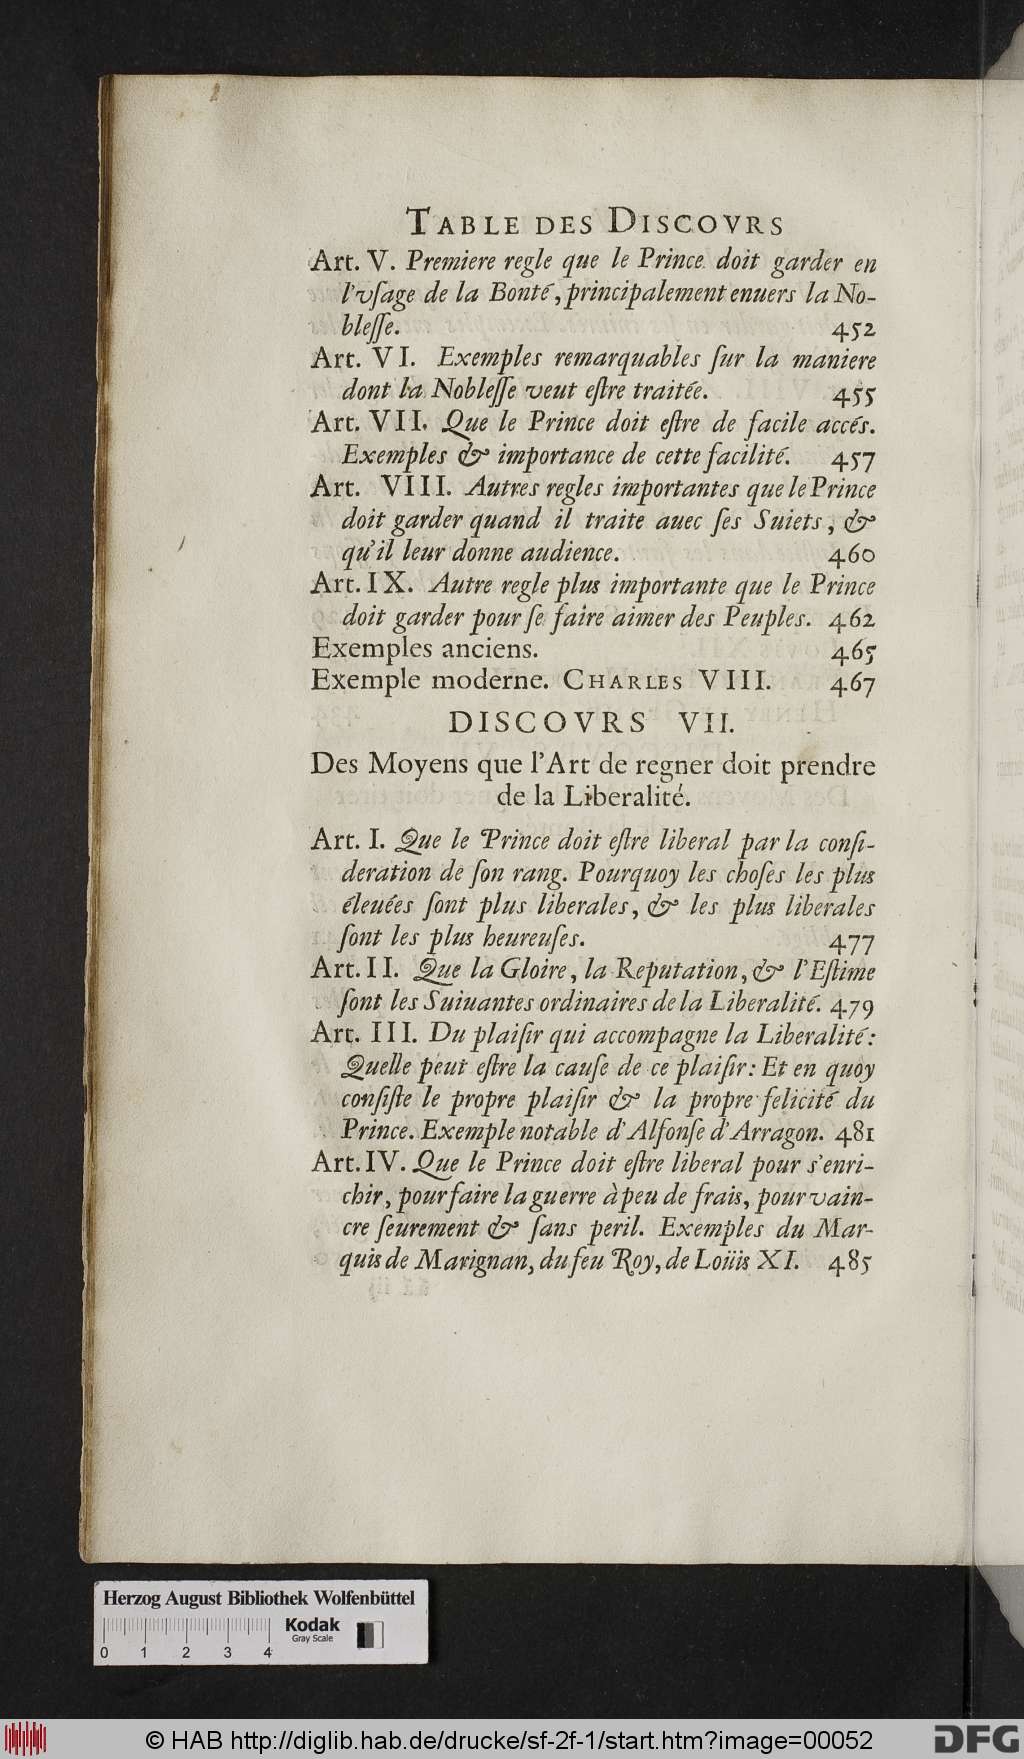 TABLE DES DISCOVRS
Art. V. Premiere regle que le Prince doit garder en
l'vſage de la Bonté, principalement enuers la No-
bleſſe. 452
Art. VI. Exemples remarquables ſur la maniere
dont la Nobleſſe veut eſtre traitée. 455
Art. VII. Que le Prince doit eſtre de facile accés.
Exemples & importance de cette facilité. 457
Art. VIII. Autres regles importantes que le Prince
doit garder quand il traite auec ſes Suiets, &
qu'il leur donne audience. 460
Art. IX. Autre regle plus importante que le Prince
doit garder pour ſe faire aimer des Peuples. 462
Exemples anciens. 465
Exemple moderne. CHARLES VIII. 467
DISCOVRS VII.
Des Moyens que l'Art de regner doit prendre
de la Liberalité.
Art. I. Que le Prince doit eſtre liberal par la conſi-
deration de ſon rang. Pourquoy les choſes les plus
éleuées ſont plus liberales, & les plus liberales
ſont les plus heureuſes. 477
Art. II. Que la Gloire, la Reputation, & l'Eſtime
ſont les Suiuantes ordinaires de la Liberalité. 479
Art. III. Du plaiſir qui accompagne la Liberalité:
Quelle peut eſtre la cauſe de ce plaiſir: Et en quoy
conſiſte le propre plaiſir & la propre felicité du
Prince. Exemple notable d'Alfonſe d'Arragon. 481
Art. IV. Que le Prince doit eſtre liberal pour s'enri-
chir, pour faire la guerre à peu de frais, pour vain-
cre ſeurement & ſans peril. Exemples du Mar-
quis de Marignan, du feu Roy, de Loüis XI. 485
Herzog August Bibliothek Wolfenbüttel
Kodak
Gray Scale
0 1 2 3 4
© HAB http://diglib.hab.de/drucke/sf-2f-1/start.htm?image=00052
DFG